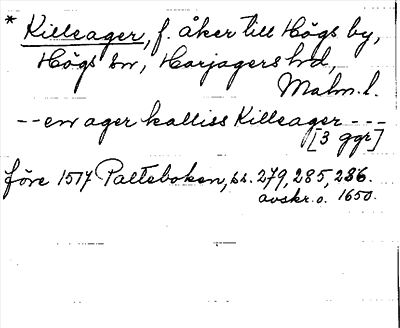 * Killeager, f. åker till Högs by,
Högs sn, Harjagers hd,
Malm. l.
-- en ager kalliss Killeager ---
[3 ggr]
före 1517 Palteboken, ss. 279, 285, 286.
avskr. o. 1650.